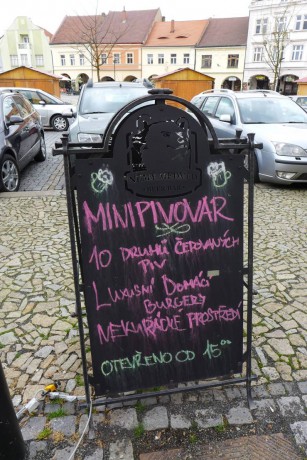 MINIPIVOVAR
10 DRUHŮ ČEPOVANÝCH
PIV
LUXUSNÍ DOMÁCÍ
BURGERY
NEKUŘÁCKÉ PROSTŘEDÍ
OTEVŘENO OD 15 00